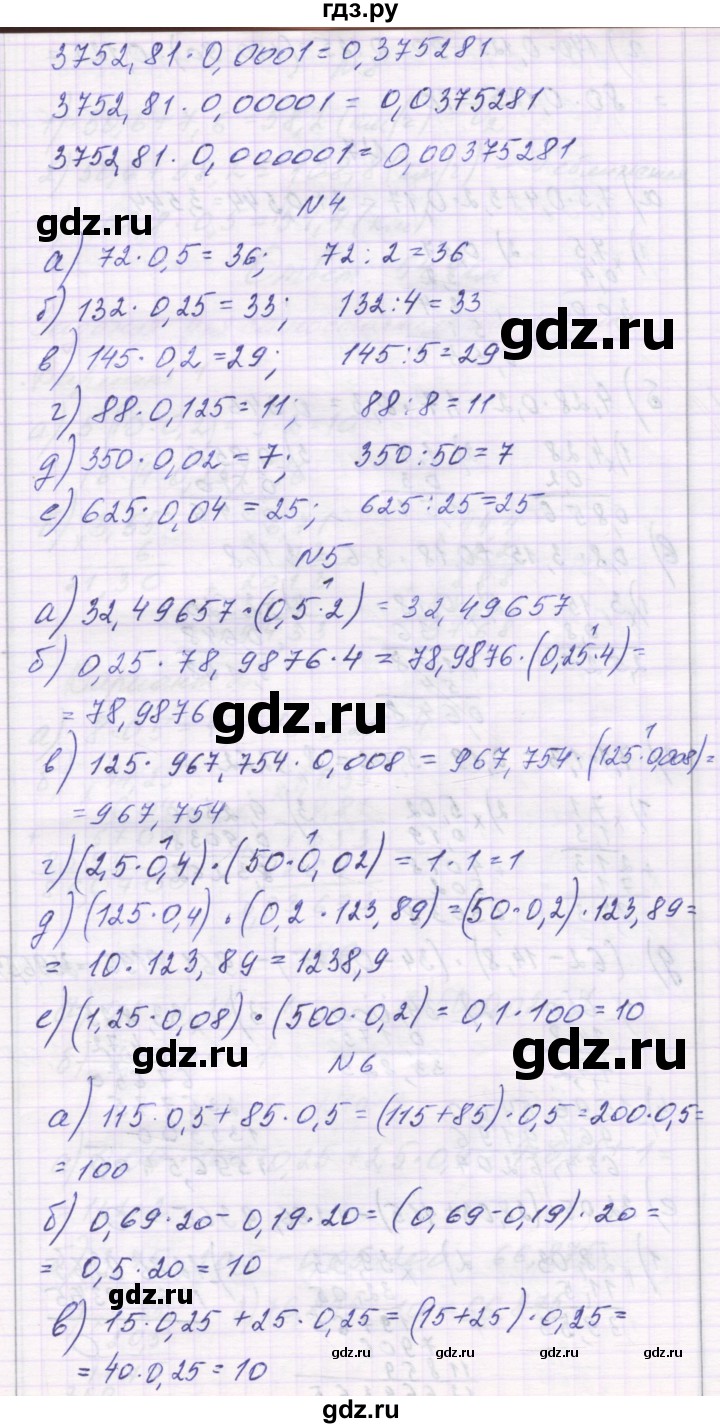 гдз.ру
3752,81·0,0001=0,375281
3752,81·0,00001=0,0375281
3752,81·0,000001=0,00375281
N4
gdz.ru
а) 72·0,5=36; 72:2=36
б) 132·0,25=33; 132:4=33
gdz.ru
в) 145·0,2=29; 145:5=29
г) 88·0,125=11; 88:8=11
д) 350·0,02=7; 350:50=7
е) 625·0,04=25; 625:25=25
N5
а) 32,49657·(0,5·2)=32,49657
1
б) 0,25·78,9876·4=78,9876·(0,25·4)=
1
=78,9876
gdz.ru
в) 125·967,754·0,008=967,754·(125·0,008)=
1
=967,754
г) (2,5·0,4)·(50·0,02)=1·1=1
1 1
д) (125·0,4)·(0,2·123,89)=(50·0,2)·123,89=
=10·123,89=1238,9
е) (1,25·0,08)·(500·0,2)=0,1·100=10
gdz.ru
gdz.ru
N6
а) 115·0,5+85·0,5=(115+85)·0,5=200·0,5=
=100
б) 0,69·20-0,19·20=(0,69-0,19)·20=
=0,5·20=10
gdz.ru
в) 15·0,25+25·0,25=(15+25)·0,25=
=40·0,25=10
gdz.ru gdz.ru gdz.ru
gdz.ru